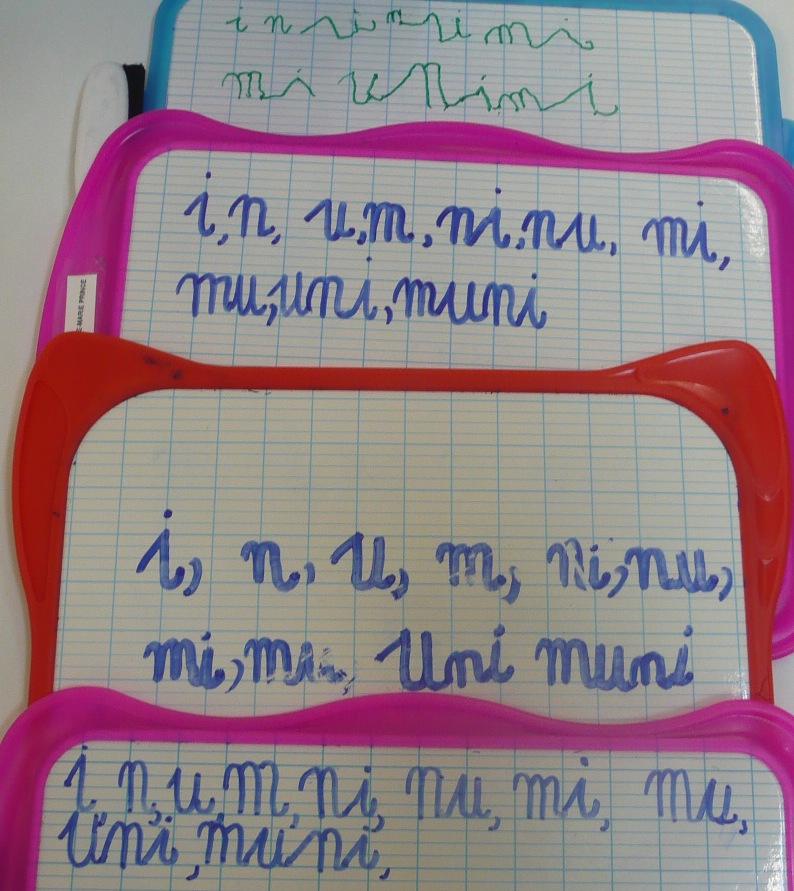 i n ni n ni mi
mi u ni mi
i, n, u, m, ni, nu, mi,
mu, uni, muni
E-MARIE PRINCE
i, n, u, m, ni, nu,
mi, uni muni
i, n, u, m, ni, nu, mi, mu,
uni, muni,